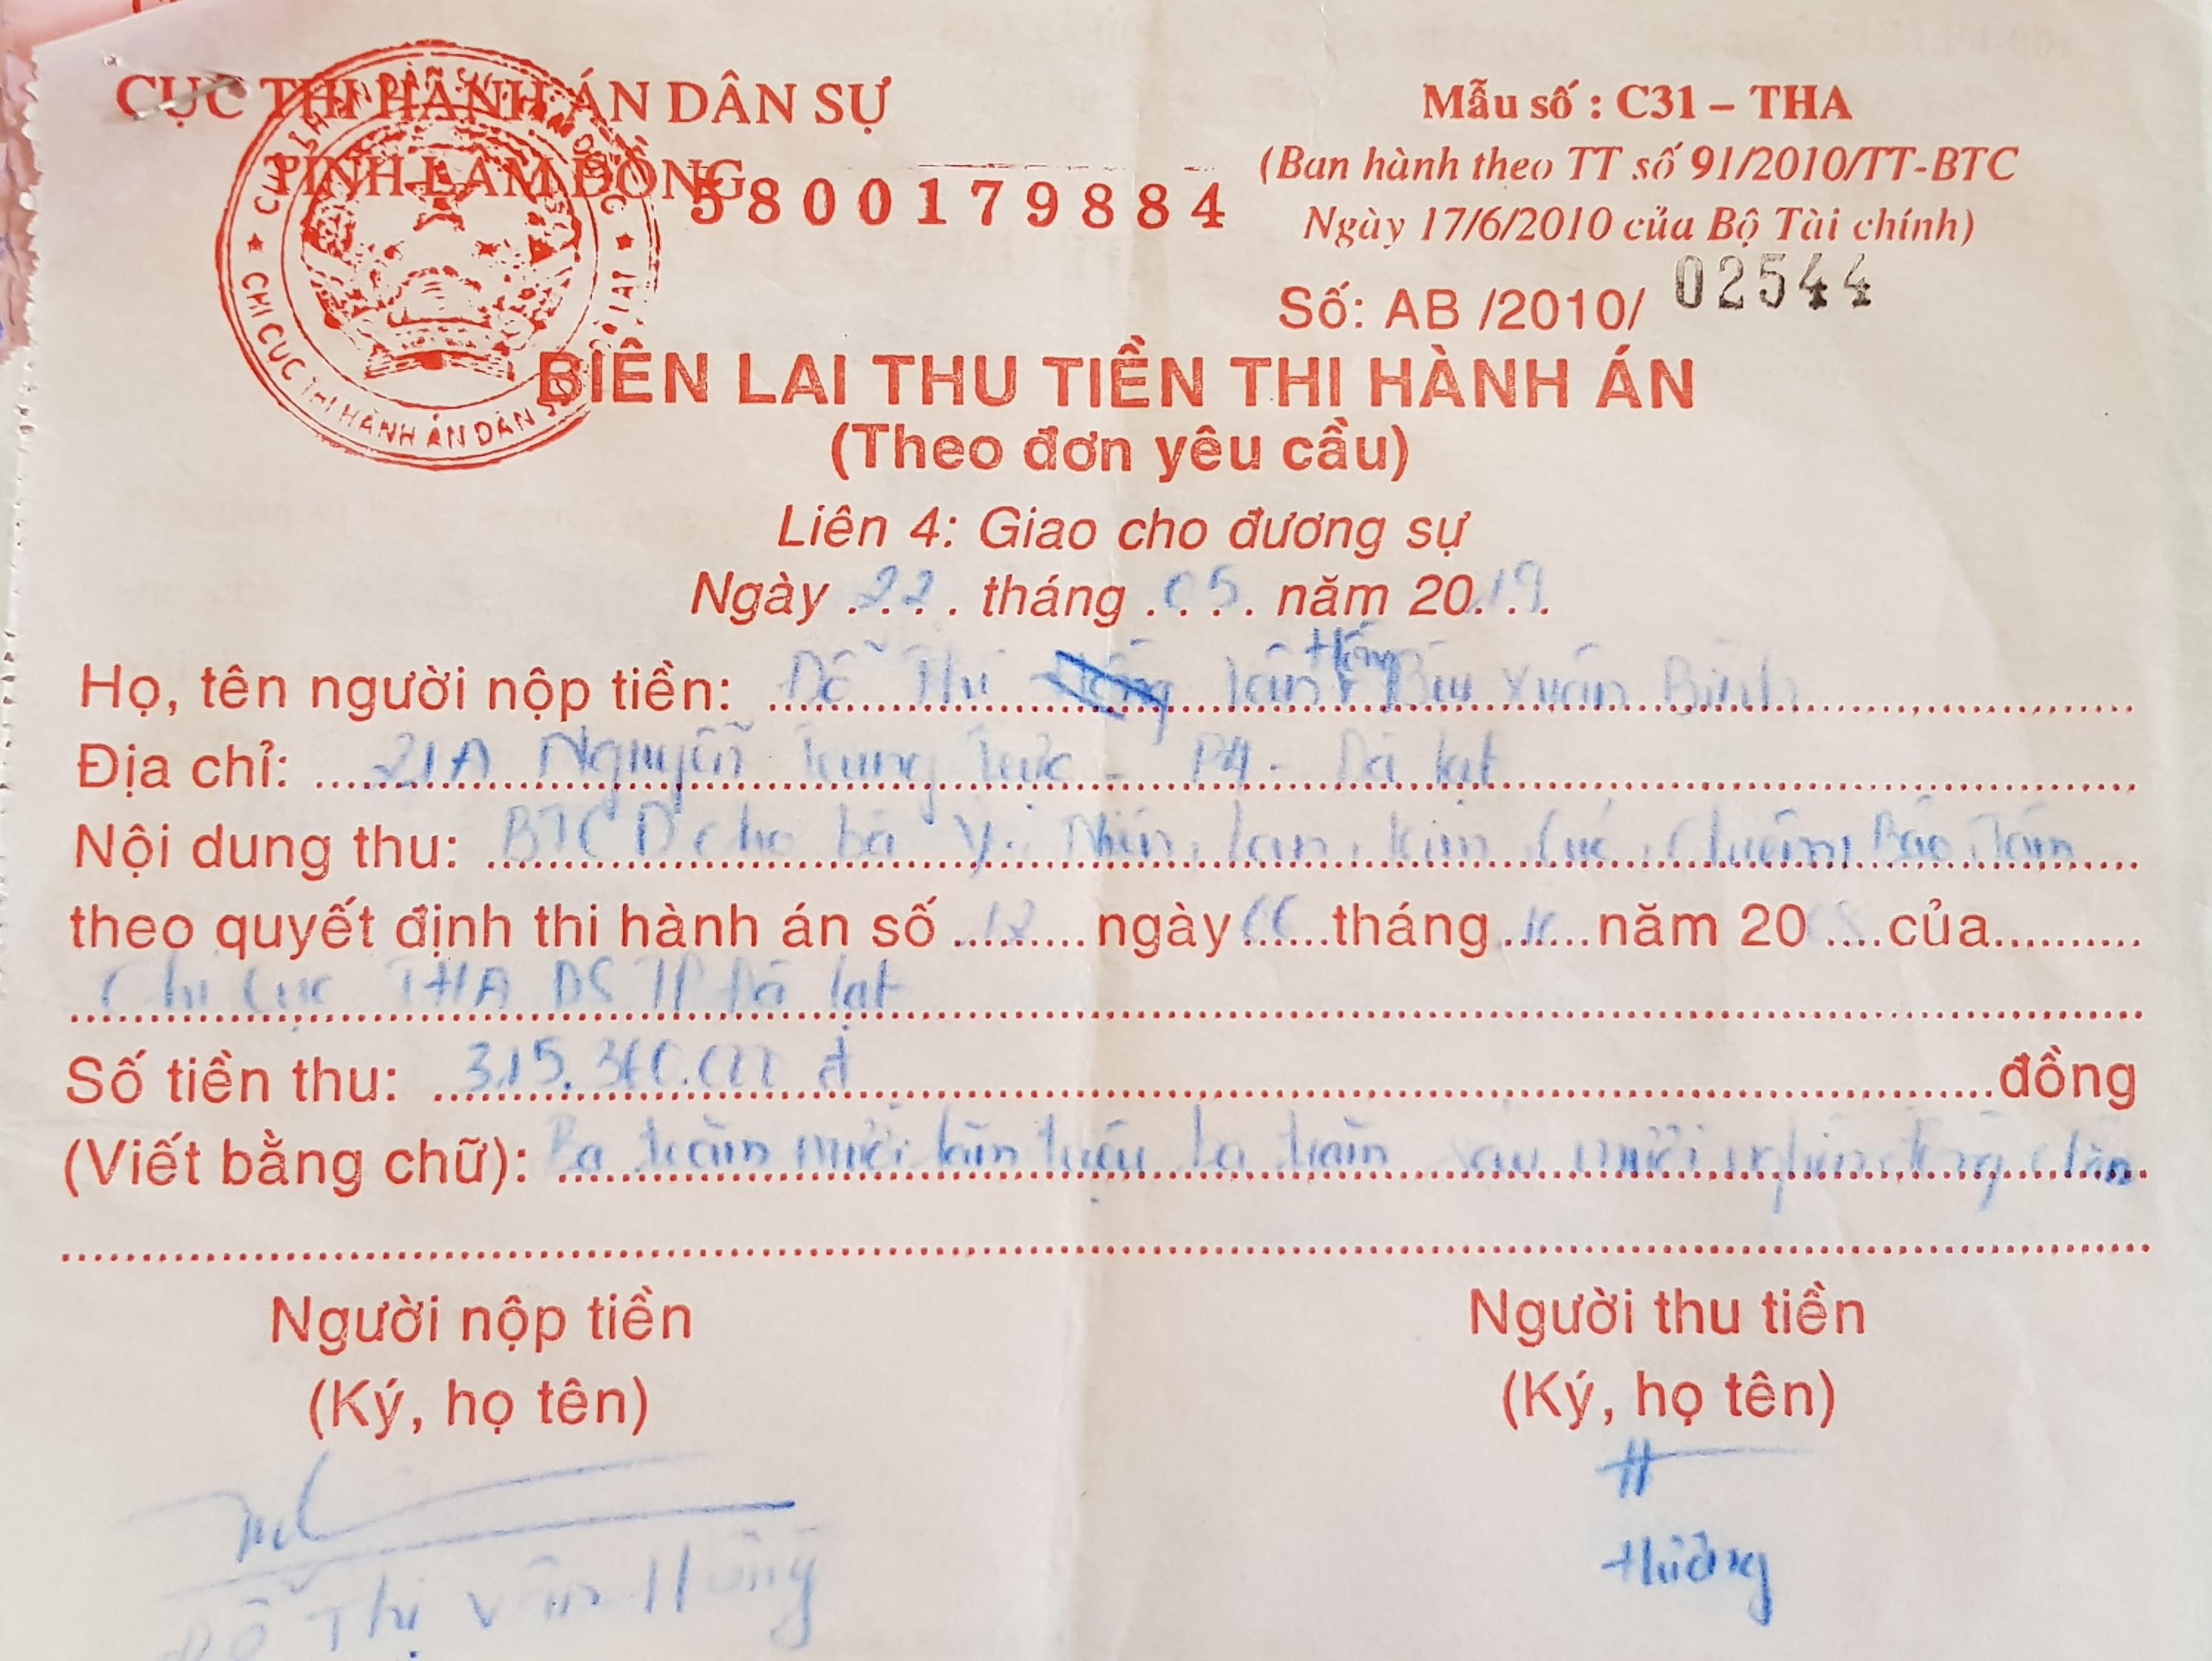 CỤC THI HÀNH ÁN DÂN SỰ
TỈNH LÂM ĐỒNG
5800179884
Mẫu số : C31 – THA
(Ban hành theo TT số 91/2010/TT-BTC
Ngày 17/6/2010 của Bộ Tài chính)
Số: AB /2010/ 02544
CHI CỤC THI HÀNH ÁN DÂN SỰ
BIÊN LAI THU TIỀN THI HÀNH ÁN
(Theo đơn yêu cầu)
Liên 4: Giao cho đương sự
Ngày 22 tháng 05 năm 2019
Họ, tên người nộp tiền: Đỗ Thị Vân Hồng Bùi Xuân Bình
Địa chỉ: 21A Nguyễn Trung Trực - P4 - Đà Lạt
Nội dung thu: cho bà
theo quyết định thi hành án số 12 ngày tháng 11 năm 20 của
Chi Cục THA DS TP Đà Lạt
Số tiền thu: 315.360.000 đ đồng
(Viết bằng chữ): Ba trăm mười lăm triệu ba trăm sáu mươi nghìn đồng chẵn
Người nộp tiền
(Ký, họ tên)
Đỗ Thị Vân Hồng
Người thu tiền
(Ký, họ tên)
Hường